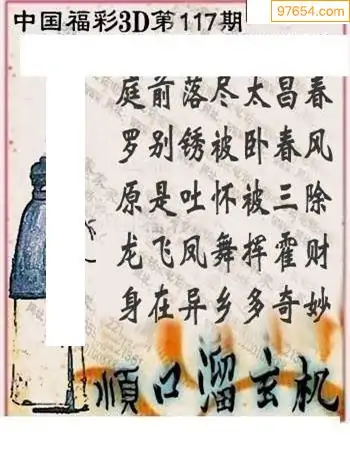 97654.com
中国福彩3D第117期
庭前落尽太昌春
罗别锈被卧春风
原是吐怀被三除
龙飞凤舞挥霍财
身在异乡多奇妙
順口溜玄机